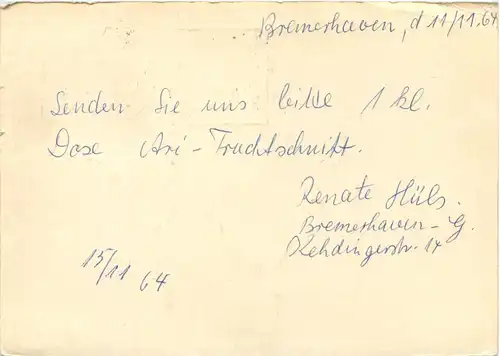 Bremerhaven, d 11/11.64
Senden Sie uns bitte 1 kl.
Dose Ari-Fruchtschnitt.
Renate Hüls.
Bremerhaven-G.
Kehdingerstr. 14
15/11 64